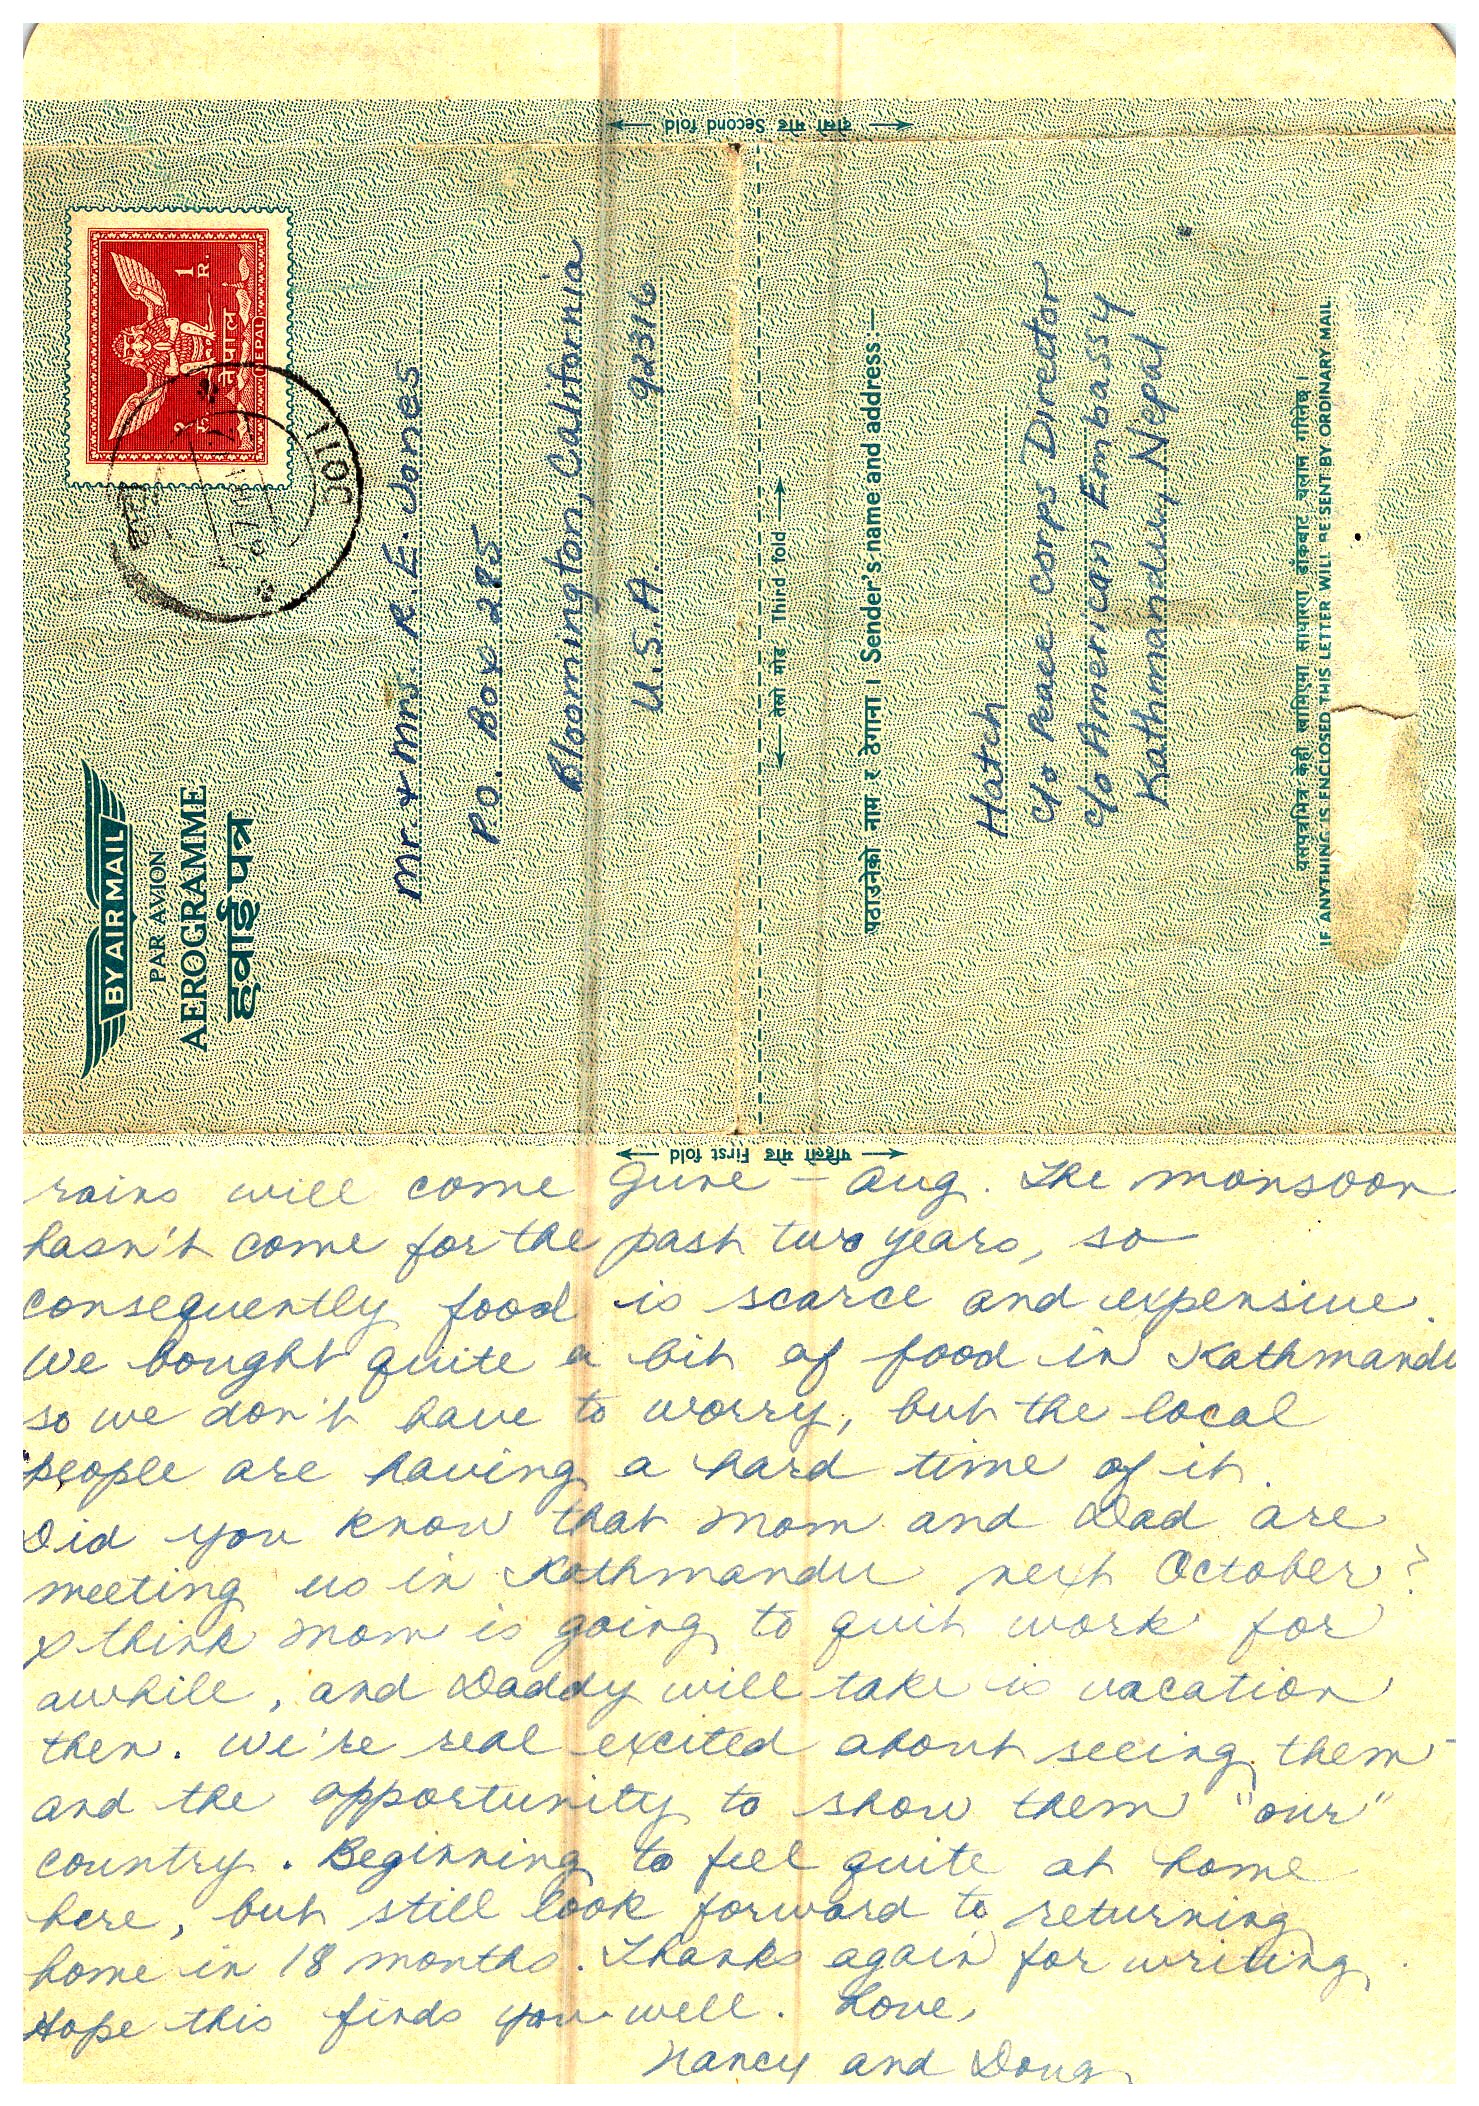 दोस्रो मोड Second fold
1 R.
१ रु.
नेपाल
NEPAL
BY AIR MAIL
PAR AVION
AEROGRAMME
हवाई पत्र
Mr. & Mrs. R. E. Jones
P.O. Box 285
Bloomington, California
U.S.A. 92316
तेस्रो मोड Third fold
पठाउनेको नाम र ठेगाना । Sender's name and address:—
Hatch
c/o Peace Corps Director
c/o American Embassy
Kathmandu, Nepal
यसपत्रभित्र केही खामिएमा साधारण डाँकबाट चलान गरिनेछ ।
IF ANYTHING IS ENCLOSED THIS LETTER WILL BE SENT BY ORDINARY MAIL
पहिलो मोड First fold
rains will come June – Aug. The monsoon
hasn't come for the past two years, so
consequently food is scarce and expensive.
We bought quite a bit of food in Kathmandu
so we don't have to worry, but the local
people are having a hard time of it.
Did you know that Mom and Dad are
meeting us in Kathmandu next October?
I think Mom is going to quit work for
awhile, and Daddy will take is vacation
then. We're real excited about seeing them
and the opportunity to show them "our"
country. Beginning to feel quite at home
here, but still look forward to returning
home in 18 months. Thanks again for writing.
Hope this finds you well. Love,
Nancy and Doug